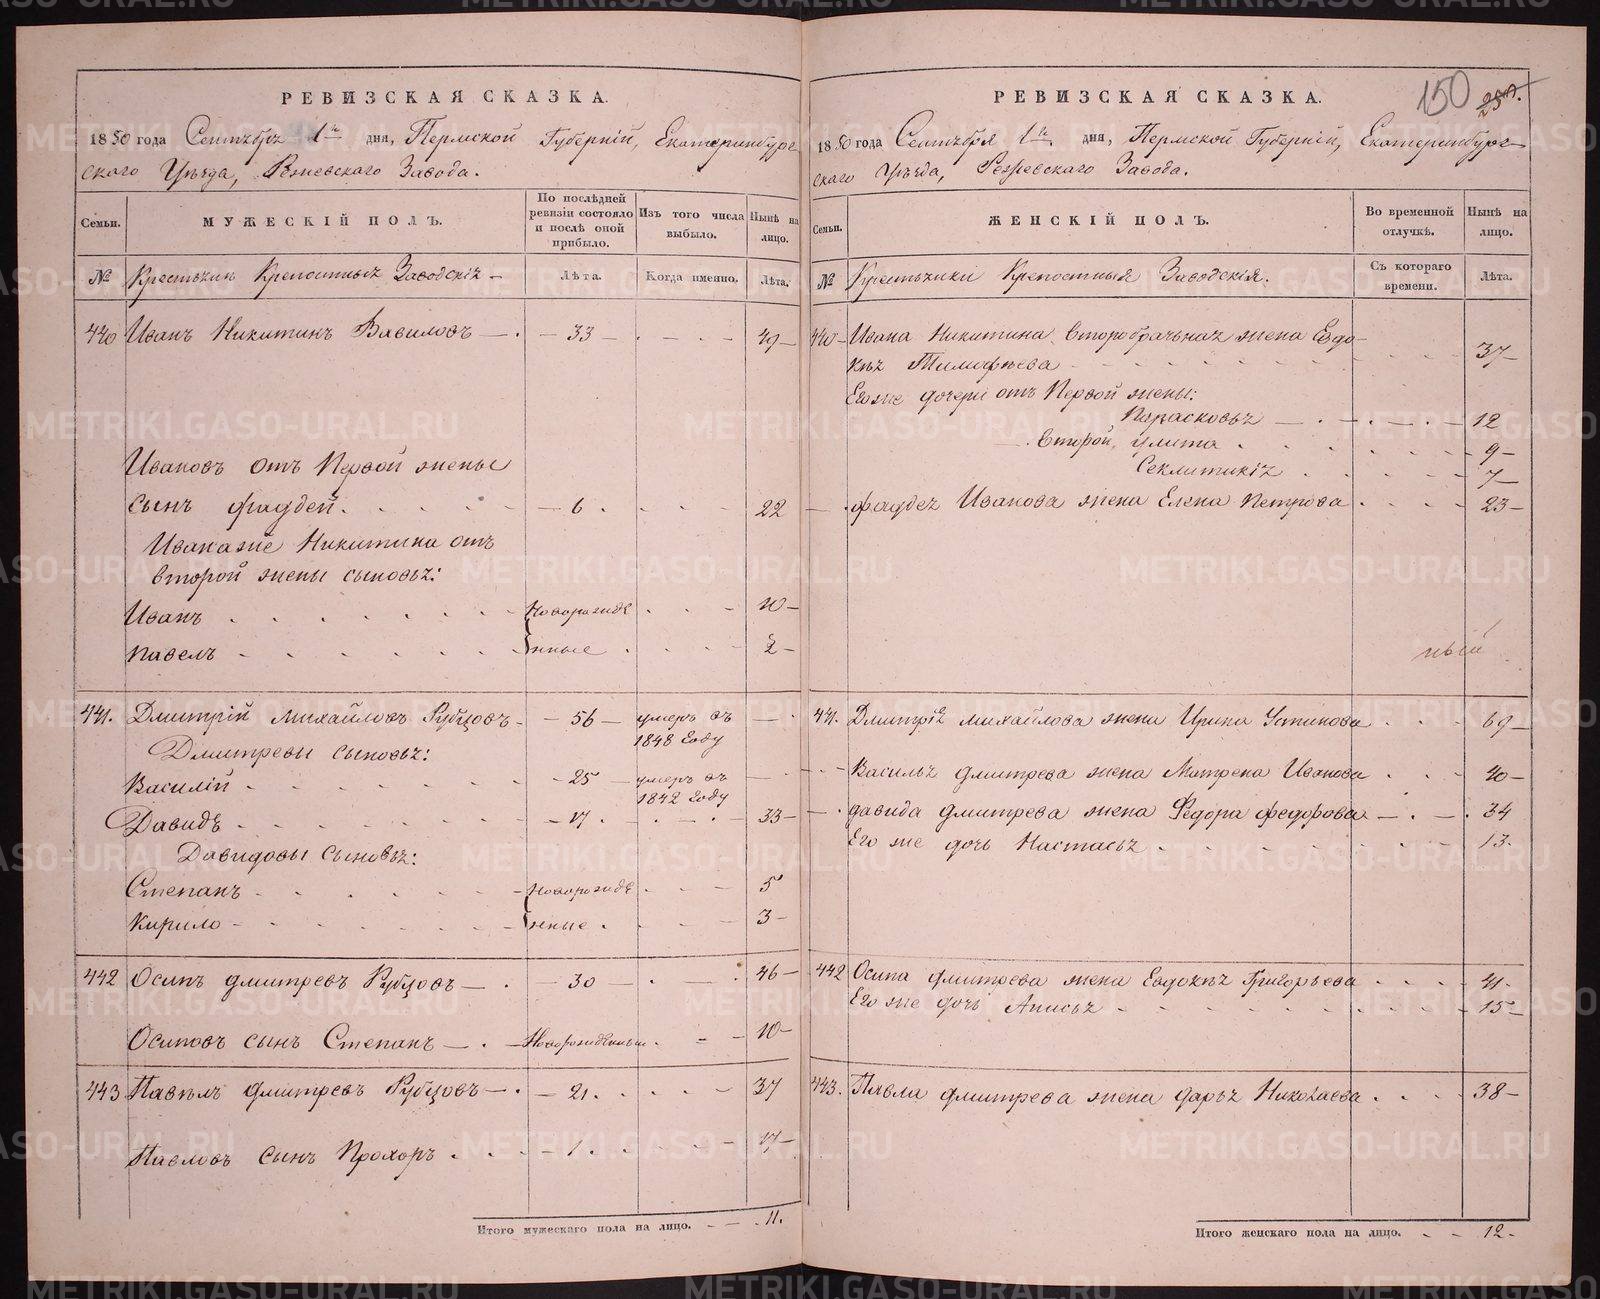 РЕВИЗСКАЯ СКАЗКА.
1850 года Сентября 1го дня, Пермской Губерніи, Екатеринбург-
скаго Уѣзда, Режевскаго Завода.
Семьи.
МУЖЕСКІЙ ПОЛЪ.
По послѣдней ревизіи состояло и послѣ оной прибыло.
Изъ того числа выбыло.
Нынѣ на лицо.
№
Крестьянъ Крепостныхъ Заводскихъ
Лѣта.
Когда именно.
Лѣта.
440 Иванъ Никитинъ Вавиловъ — 33 — 49
Ивановъ отъ Первой жены
сынъ Фаддей. 6. 22
Иванаже Никитина отъ
второй жены сыновья:
Иванъ Новорожде 10
Павелъ нные 2
441. Дмитрій Михайловъ Рубцовъ — 56 — умеръ въ 1848 году
Дмитревы сыновья:
Василій — 25 — умеръ въ 1842 году
Давидъ — 17. 33
Давидовы сыновья:
Степанъ Новорожде 5
Кирило нные. 3
442 Осипъ Дмитревъ Рубцовъ — 30 — 46
Осиповъ сынъ Степанъ — Новорожденный. 10
443 Павелъ Дмитревъ Рубцовъ — 21. 37
Павловъ сынъ Прохоръ — 1. 17
Итого мужескаго пола на лицо. 11.
150
РЕВИЗСКАЯ СКАЗКА.
1850 года Сентября 1го дня, Пермской Губерніи, Екатеринбург-
скаго Уѣзда, Режевскаго Завода.
Семьи.
ЖЕНСКІЙ ПОЛЪ.
Во временной отлучкѣ.
Нынѣ на лицо.
№
Крестьянки Крепостныя Заводскія.
Съ котораго времени.
Лѣта.
440 Ивана Никитина второбрачная жена Евдо-
кія Тимофѣева 37
Его же дочери отъ Первой жены:
Парасковья 12
второй, Улита 9
Секлитикія 7
Фаддея Иванова жена Елена Петрова 23
ный
441. Дмитрія Михайлова жена Ирина Устинова 69
Василья Дмитрева жена Матрена Иванова 40
Давида Дмитрева жена Федора Федорова 34
Его же дочь Настасья 13.
442 Осипа Дмитрева жена Евдокія Григорьева 41.
Его же дочь Анисья 15
443. Павла Дмитрева жена Дарья Николаева 38
Итого женскаго пола на лицо. 12.
METRIKI.GASO-URAL.RU